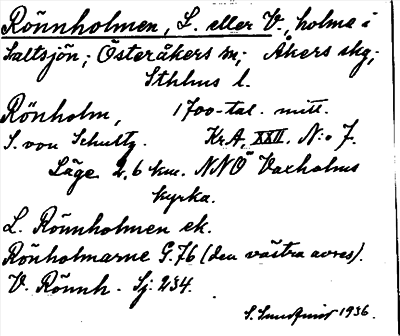 Rönnholmen, L. eller V., holme i
Saltsjön; Österåkers sn; Åkers skg;
Sthlms l.
Rönholm, 1700-tal. mitt.
S. von Schultz. Kr.A, XXII. N:o 7.
Läge 2,6 km. NNÖ Vaxholms
kyrka.
L. Rönnholmen ek.
Rönholmarne G.76 (den västra avses).
V. Rönnh. Sj. 234.
S. Sundqvist 1936.